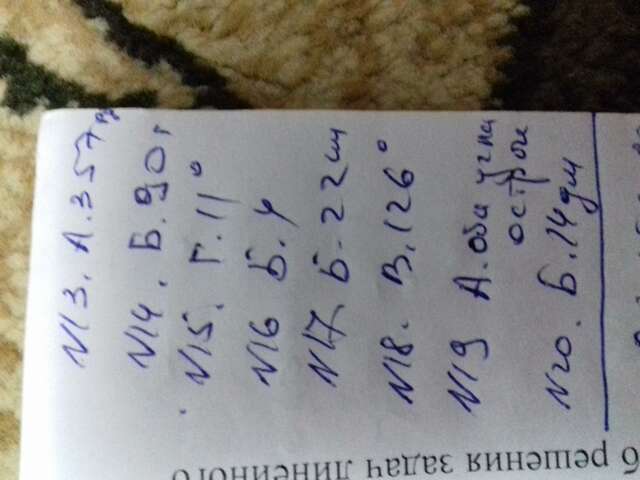 N13. А. 357 р
N14. Б. 90 г
N15. Г. 11°
N16 Б. 4
N17. Б. 22 см
N18. В. 126°
N19 А. оба угла
острые
N20. Б. 14 дм
б решения задач линейного